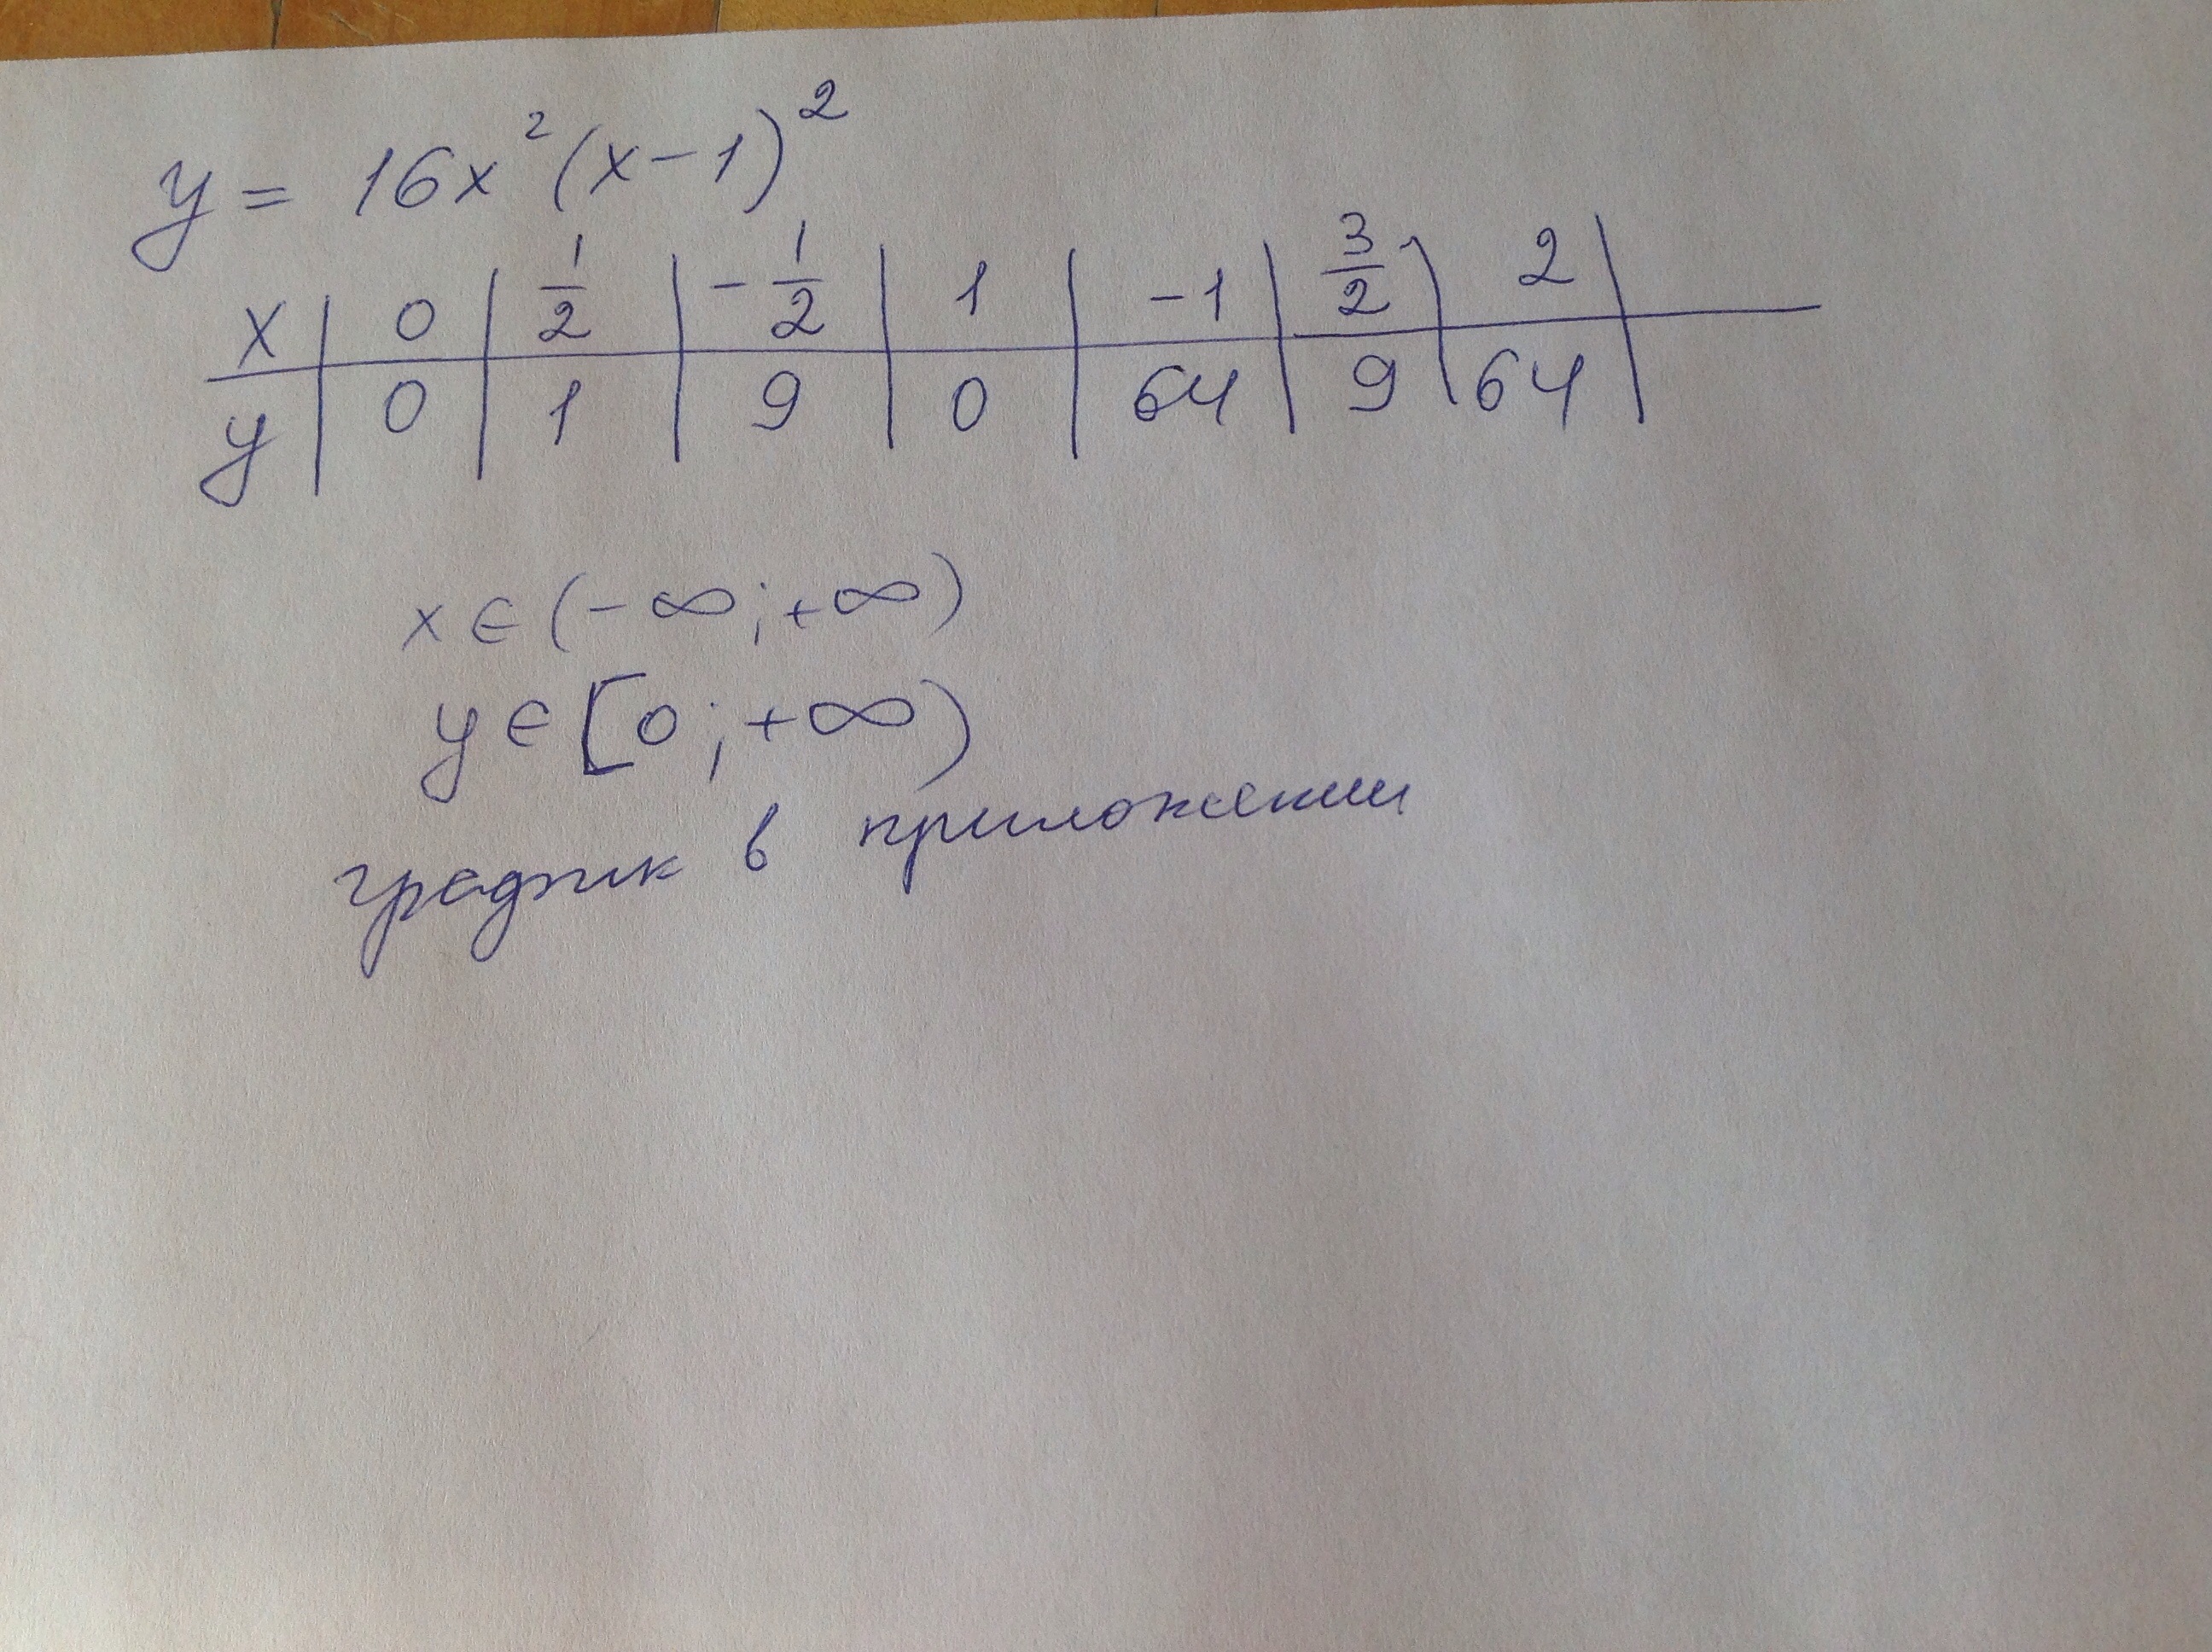 y = 16x²(x-1)²
x | 0 | 1/2 | -1/2 | 1 | -1 | 3/2 | 2 |
y | 0 | 1 | 9 | 0 | 64 | 9 | 64 |
x ∈ (-∞; +∞)
y ∈ [0; +∞)
график в приложении